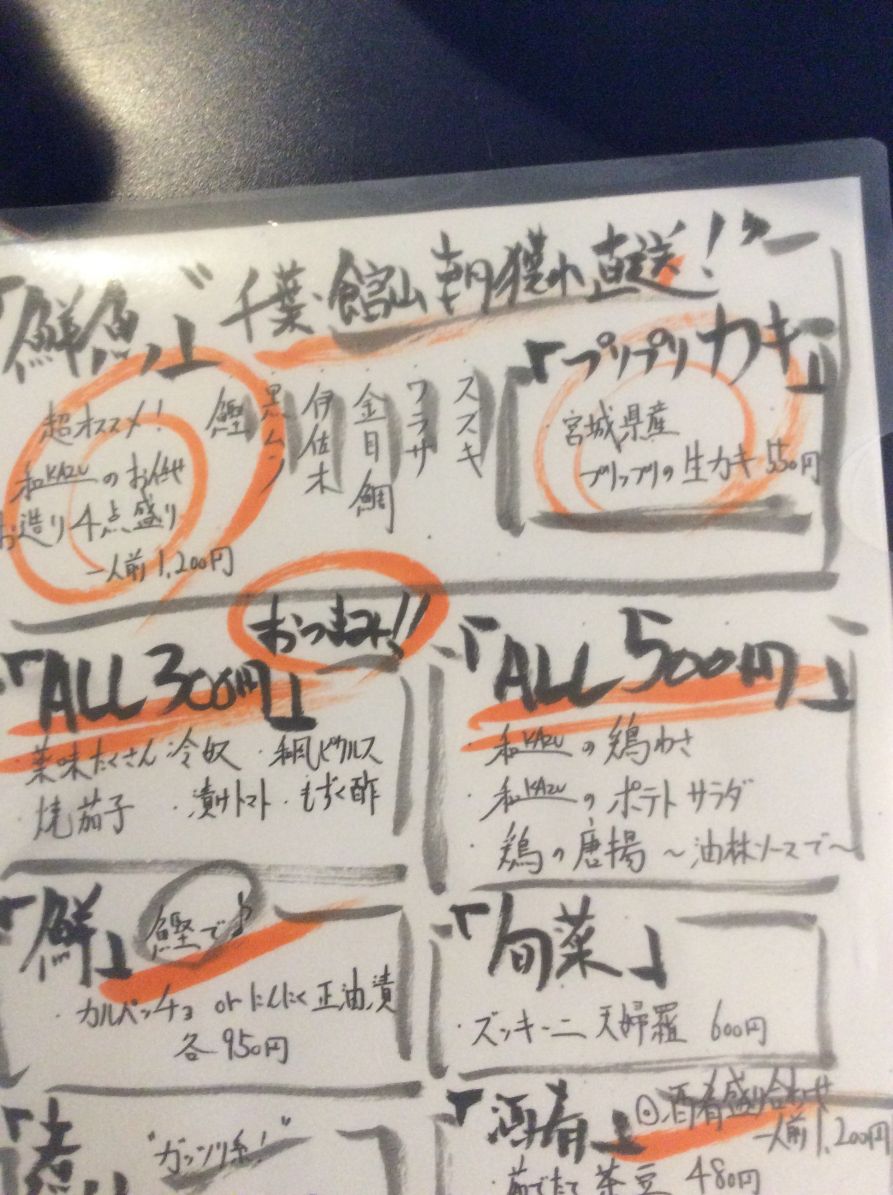 「鮮魚」"千葉・館山朝獲れ直送!"
超オススメ!
和KAZUのお任せ
お造り4点盛り
一人前1,200円
鰹
黒ムツ
伊佐木
金目鯛
ワラサ
スズキ
「プリプリカキ」
宮城県産
プリップリの生カキ 550円
おつまみ!!
「ALL 300円」
・薬味たくさん冷奴 ・和風ピクルス
・焼茄子 ・漬けトマト ・もずく酢
「ALL 500円」
・和KAZUの鶏わさ
・和KAZUのポテトサラダ
・鶏の唐揚 〜油林ソースで〜
「鮮」鰹で♪
・カルパッチョ orにんにく正油漬
各950円
「旬菜」
・ズッキーニ天婦羅 600円
"ガッツリ系!"
「酒肴」
◎酒肴盛り合わせ
一人前1,200円
茹でたて茶豆 480円